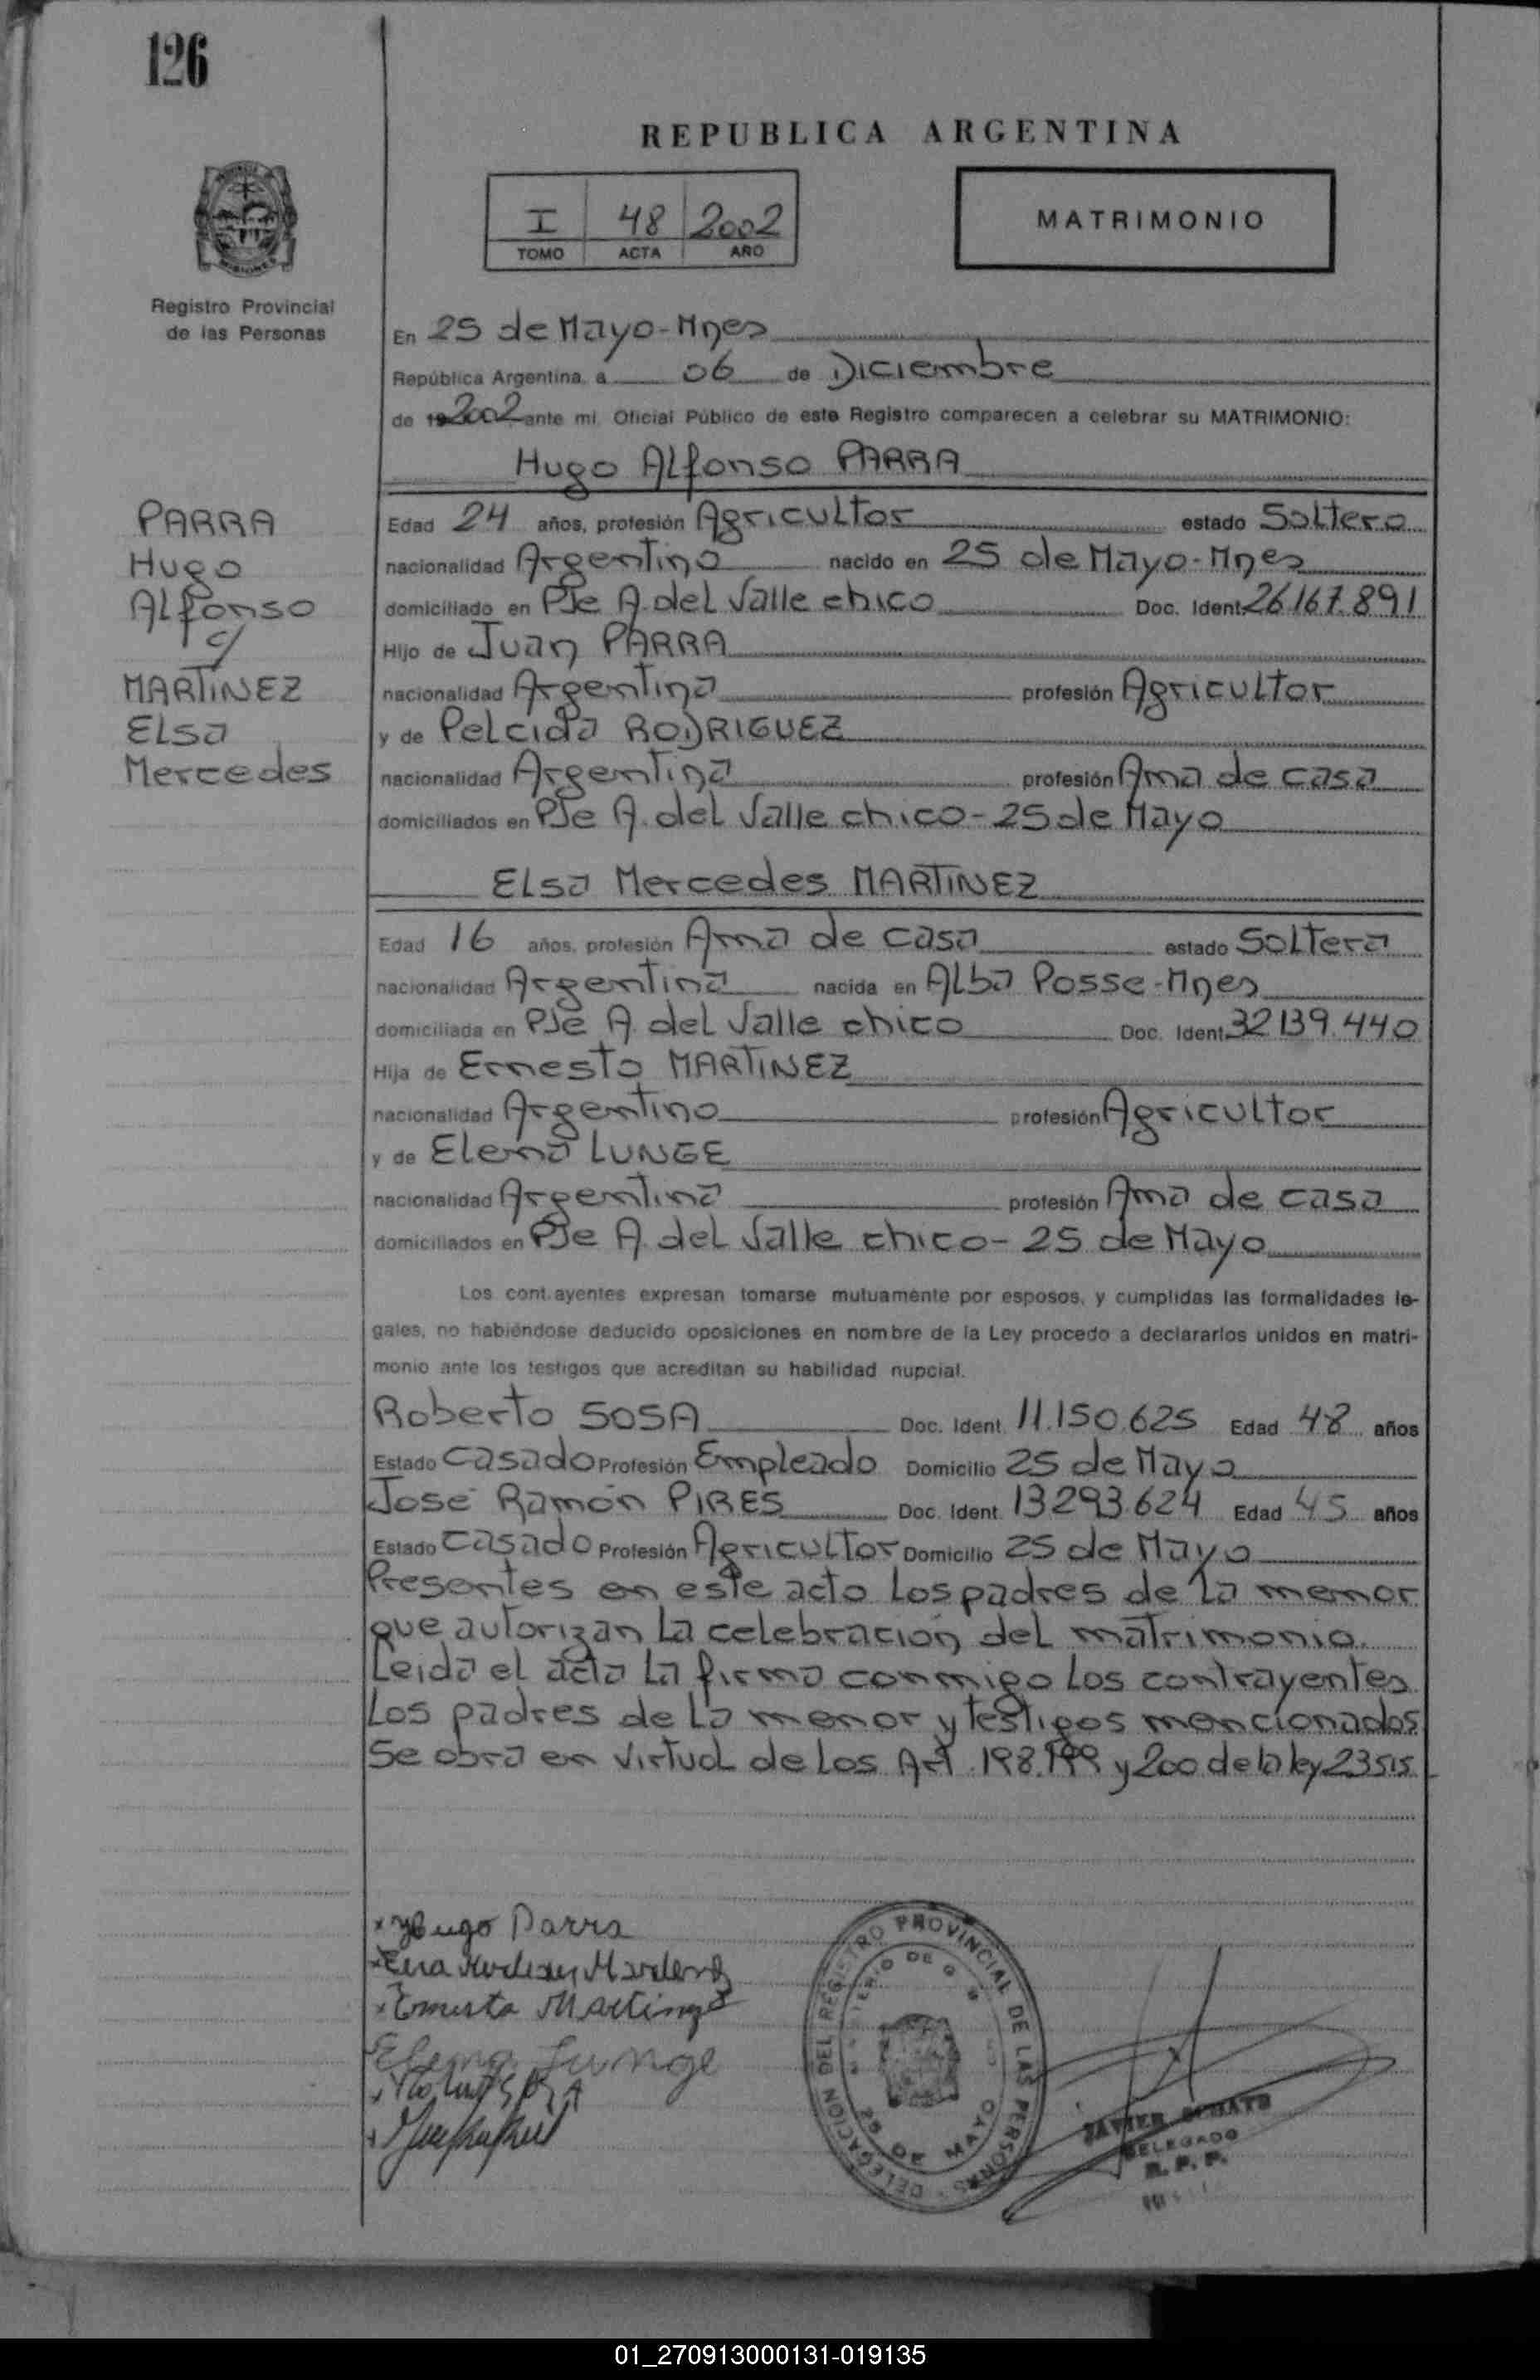 126
REPUBLICA ARGENTINA
I 48 2002
TOMO ACTA AÑO
MATRIMONIO
Registro Provincial
de las Personas
En 25 de Mayo-Mnes
República Argentina, a 06 de Diciembre
de 19 2002 ante mi, Oficial Público de este Registro comparecen a celebrar su MATRIMONIO:
Hugo Alfonso PARRA
PARRA
Hugo
Alfonso
c/
MARTINEZ
Elsa
Mercedes
Edad 24 años, profesión Agricultor estado Soltero
nacionalidad Argentino nacido en 25 de Mayo-Mnes
domiciliado en Pje A. del Valle chico Doc. Ident. 26.167.891
Hijo de Juan PARRA
nacionalidad Argentina profesión Agricultor
y de Pelcida RODRIGUEZ
nacionalidad Argentina profesión Ama de casa
domiciliados en Pje A. del Valle chico-25 de Mayo
Elsa Mercedes MARTINEZ
Edad 16 años, profesión Ama de casa estado Soltera
nacionalidad Argentina nacida en Alba Posse-Mnes
domiciliada en Pje A. del Valle chico Doc. Ident. 32139.440
Hija de Ernesto MARTINEZ
nacionalidad Argentino profesión Agricultor
y de Elena LUNGE
nacionalidad Argentina profesión Ama de casa
domiciliados en Pje A. del Valle chico-25 de Mayo
Los contrayentes expresan tomarse mutuamente por esposos, y cumplidas las formalidades le-
gales, no habiéndose deducido oposiciones en nombre de la Ley procedo a declararlos unidos en matri-
monio ante los testigos que acreditan su habilidad nupcial.
Roberto SOSA Doc. Ident. 11.150.625 Edad 48 años
Estado Casado Profesión Empleado Domicilio 25 de Mayo
José Ramón PIRES Doc. Ident. 13293.624 Edad 45 años
Estado Casado Profesión Agricultor Domicilio 25 de Mayo
Presentes en este acto los padres de la menor
que autorizan la celebración del matrimonio.
Leida el acta la firma conmigo los contrayentes
Los padres de la menor y testigos mencionados
Se obra en virtud de los Art. 198.199 y 200 de la ley 23515
x Hugo Parra
x Ernesto Martinez
Elena Lunge
DELEGACION DEL REGISTRO PROVINCIAL DE LAS PERSONAS
25 DE MAYO
DELEGADO
R. P. P.
01_270913000131-019135